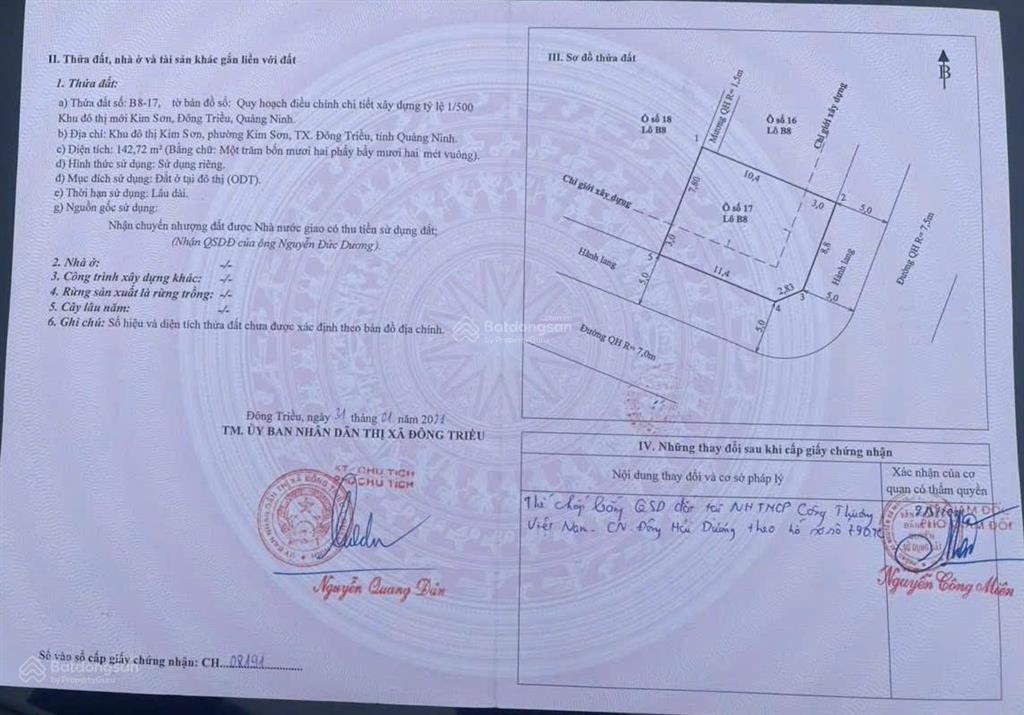 II. Thửa đất, nhà ở và tài sản khác gắn liền với đất
1. Thửa đất:
a) Thửa đất số: B8-17, tờ bản đồ số: Quy hoạch điều chỉnh chi tiết xây dựng tỷ lệ 1/500
Khu đô thị mới Kim Sơn, Đông Triều, Quảng Ninh.
b) Địa chỉ: Khu đô thị Kim Sơn, phường Kim Sơn, TX. Đông Triều, tỉnh Quảng Ninh.
c) Diện tích: 142,72 m² (Bằng chữ: Một trăm bốn mươi hai phẩy bảy mươi hai mét vuông).
d) Hình thức sử dụng: Sử dụng riêng.
đ) Mục đích sử dụng: Đất ở tại đô thị (ODT).
e) Thời hạn sử dụng: Lâu dài.
g) Nguồn gốc sử dụng:
Nhận chuyển nhượng đất được Nhà nước giao có thu tiền sử dụng đất;
(Nhận QSDĐ của ông Nguyễn Đức Dương).
2. Nhà ở: -/-
3. Công trình xây dựng khác: -/-
4. Rừng sản xuất là rừng trồng: -/-
5. Cây lâu năm: -/-
6. Ghi chú: Số hiệu và diện tích thửa đất chưa được xác định theo bản đồ địa chính.
Đông Triều, ngày 31 tháng 01 năm
TM. ỦY BAN NHÂN DÂN THỊ XÃ ĐÔNG TRIỀU
KT. CHỦ TỊCH
PHÓ CHỦ TỊCH
Nguyễn Quang Dân
Số vào sổ cấp giấy chứng nhận: CH...08191
III. Sơ đồ thửa đất
B
Ô số 18
Lô B8
Mương QH R= 1,5m
Ô số 16
Lô B8
Chỉ giới xây dựng
1
10,4
7,80
2
3,0
5,0
Chỉ giới xây dựng
Ô số 17
Lô B8
8,8
Hành lang
Đường QH R= 7,5m
3,0
5
Hành lang
11,4
5,0
2,83
3
5,0
4
5,0
Đường QH R= 7,0m
IV. Những thay đổi sau khi cấp giấy chứng nhận
Nội dung thay đổi và cơ sở pháp lý
Xác nhận của cơ
quan có thẩm quyền
Thế chấp bằng QSD đất tại NHTMCP Công Thương
Việt Nam - CN Đông Hải Dương theo hồ sơ số
Nguyễn Công Miên
Batdongsan
by PropertyGuru
Batdongsan
by PropertyGuru